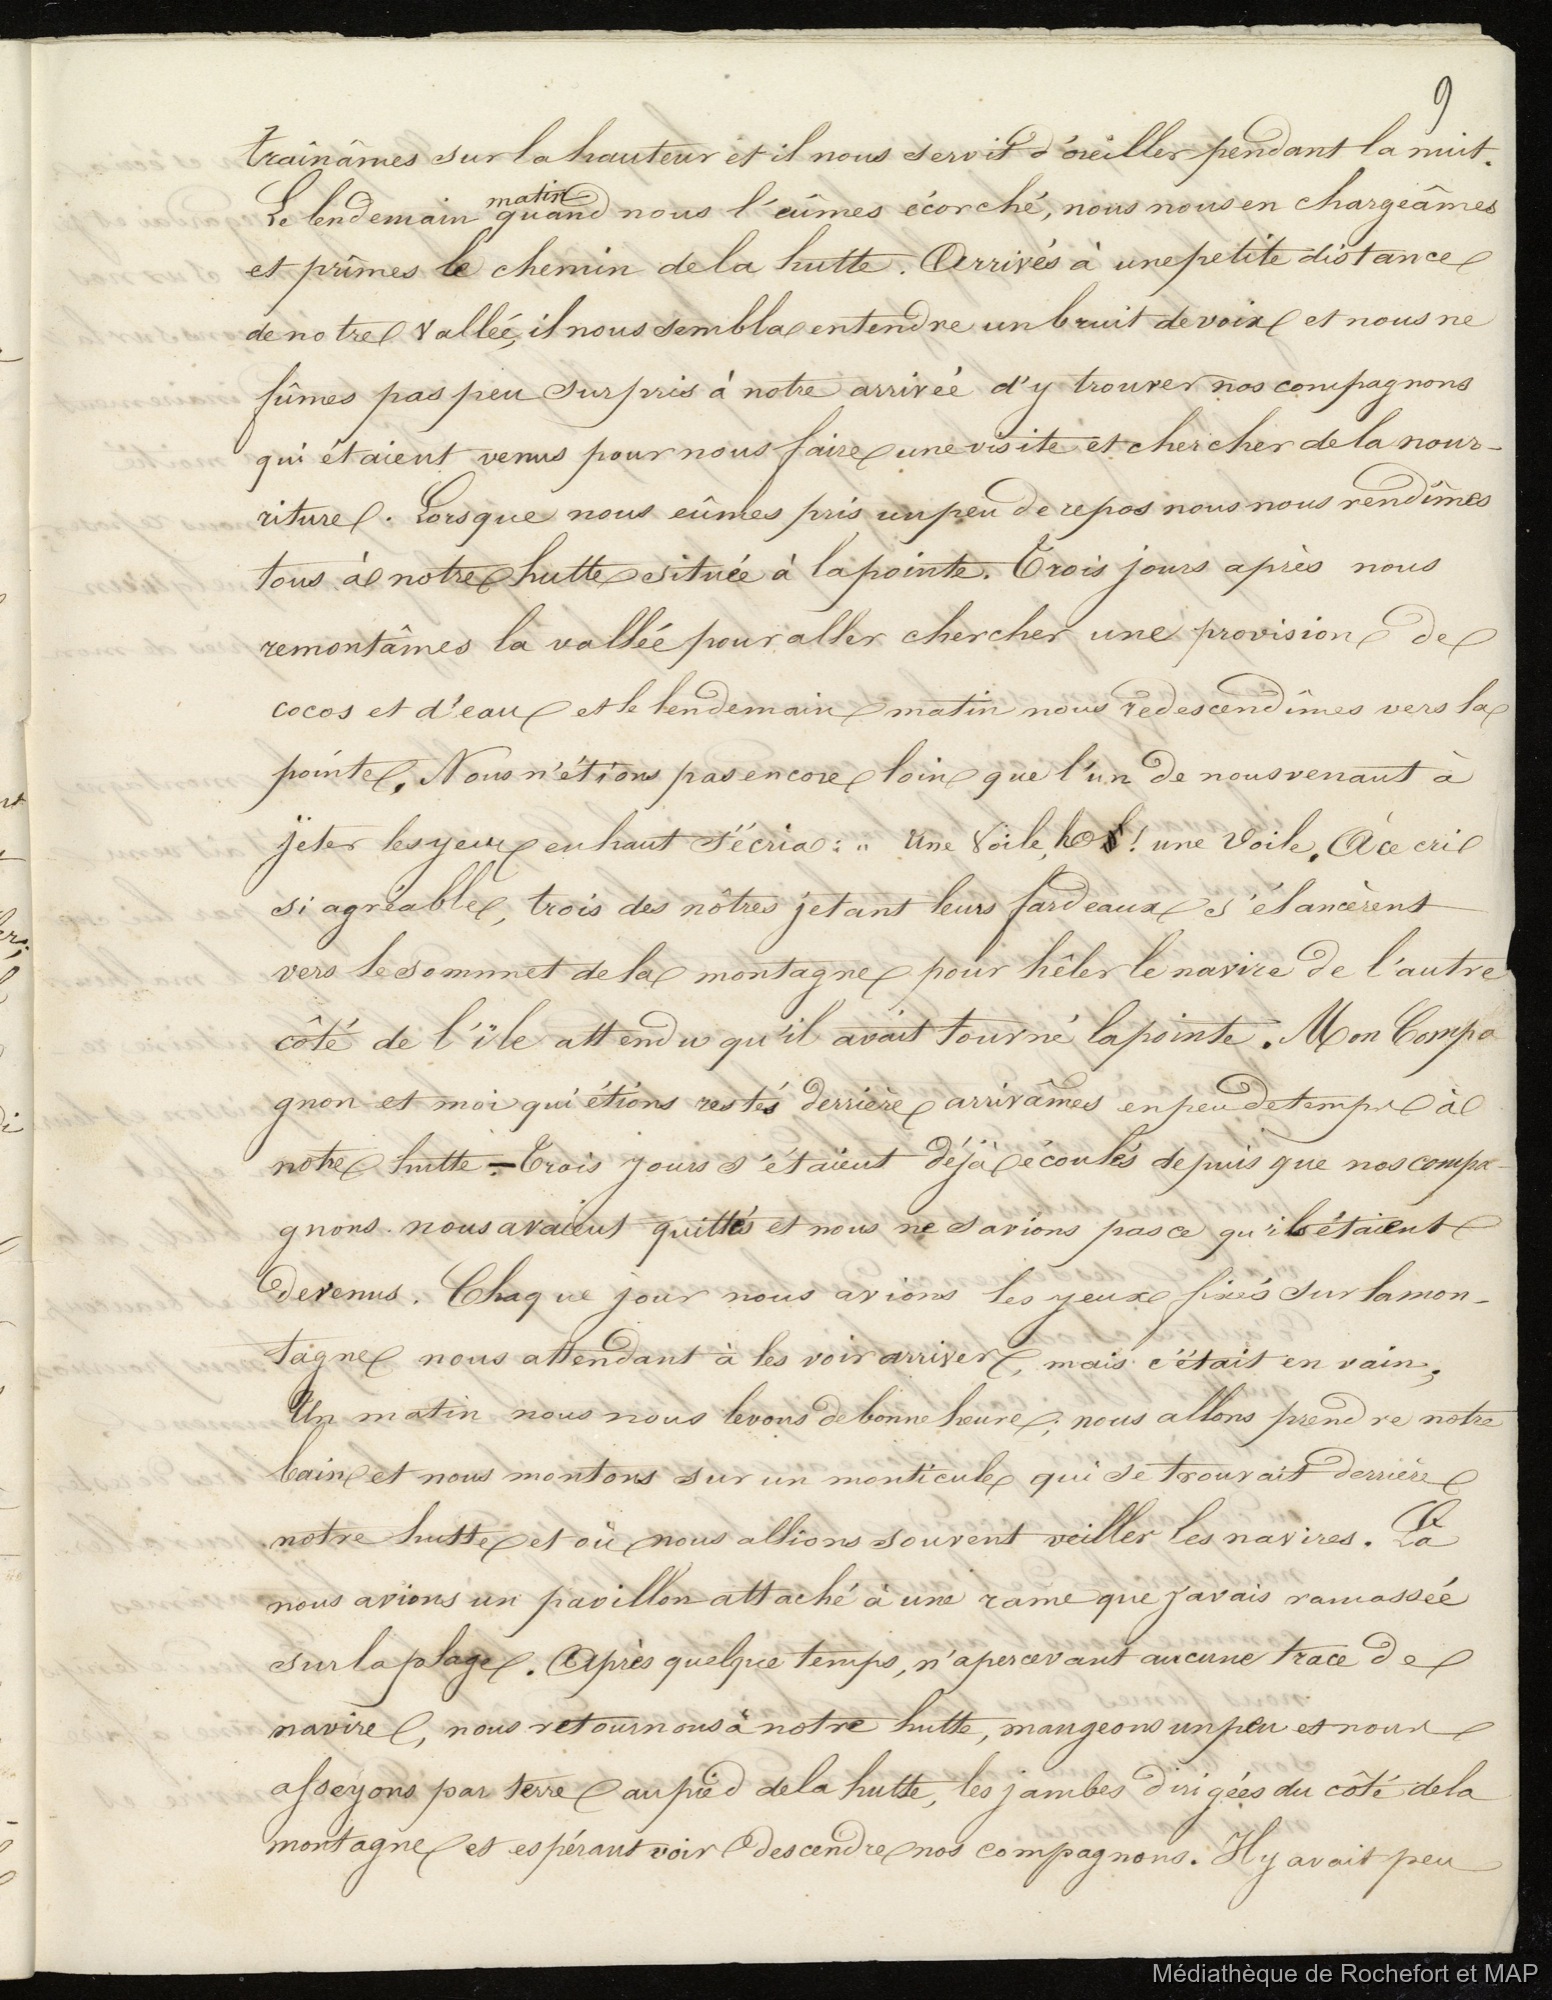 9
traînâmes sur la hauteur et il nous servit d'oreiller pendant la nuit.
Le lendemain matin quand nous l'eûmes écorché, nous nous en chargeâmes
et prîmes le chemin de la hutte. Arrivés à une petite distance
de notre vallée, il nous sembla entendre un bruit de voix et nous ne
fûmes pas peu surpris à notre arrivée d'y trouver nos compagnons
qui étaient venus pour nous faire une visite et chercher de la nour-
riture. Lorsque nous eûmes pris un peu de repos nous nous rendîmes
tous à notre hutte située à la pointe. Trois jours après nous
remontâmes la vallée pour aller chercher une provision de
cocos et d'eau et le lendemain matin nous redescendîmes vers la
pointe. Nous n'étions pas encore loin que l'un de nous venant à
jeter les yeux en haut s'écria: „ Une Voile, ! une Voile. À ce cri
si agréable, trois des nôtres jetant leurs fardeaux s'élancèrent
vers le sommet de la montagne pour hêler le navire de l'autre
côté de l'île attendu qu'il avait tourné la pointe. Mon Compa
gnon et moi qui étions restés derrière arrivâmes en peu de temps à
notre hutte - Trois jours s'étaient déjà écoulés depuis que nos compa-
gnons nous avaient quittés et nous ne savions pas ce qu'ils étaient
devenus. Chaque jour nous avions les yeux fixés sur la mon-
tagne nous attendant à les voir arriver, mais c'était en vain;
Un matin nous nous levons de bonne heure; nous allons prendre notre
bain et nous montons sur un monticule qui se trouvait derrière
notre hutte et où nous allions souvent veiller les navires. Là
nous avions un pavillon attaché à une rame que j'avais ramassée
sur la plage. Après quelque temps, n'apercevant aucune trace de
navire, nous retournons à notre hutte, mangeons un peu et nous
asseyons par terre au pied de la hutte, les jambes dirigées du côté de la
montagne et espérant voir descendre nos compagnons. Il y avait peu
Médiathèque de Rochefort et MAP